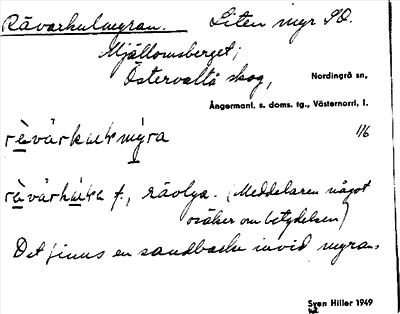 Rävarkulmyran. Liten myr SO.
Mjällomsberget;
Östervalto skog, Nordingrå sn,
Ångermanl. s. doms. tg., Västernorrl. l.
1/6
f., rävlya. (Meddelaren något
osäker om betydelsen)
Det finns en sandbacke invid myran.
Sven Hiller 1949